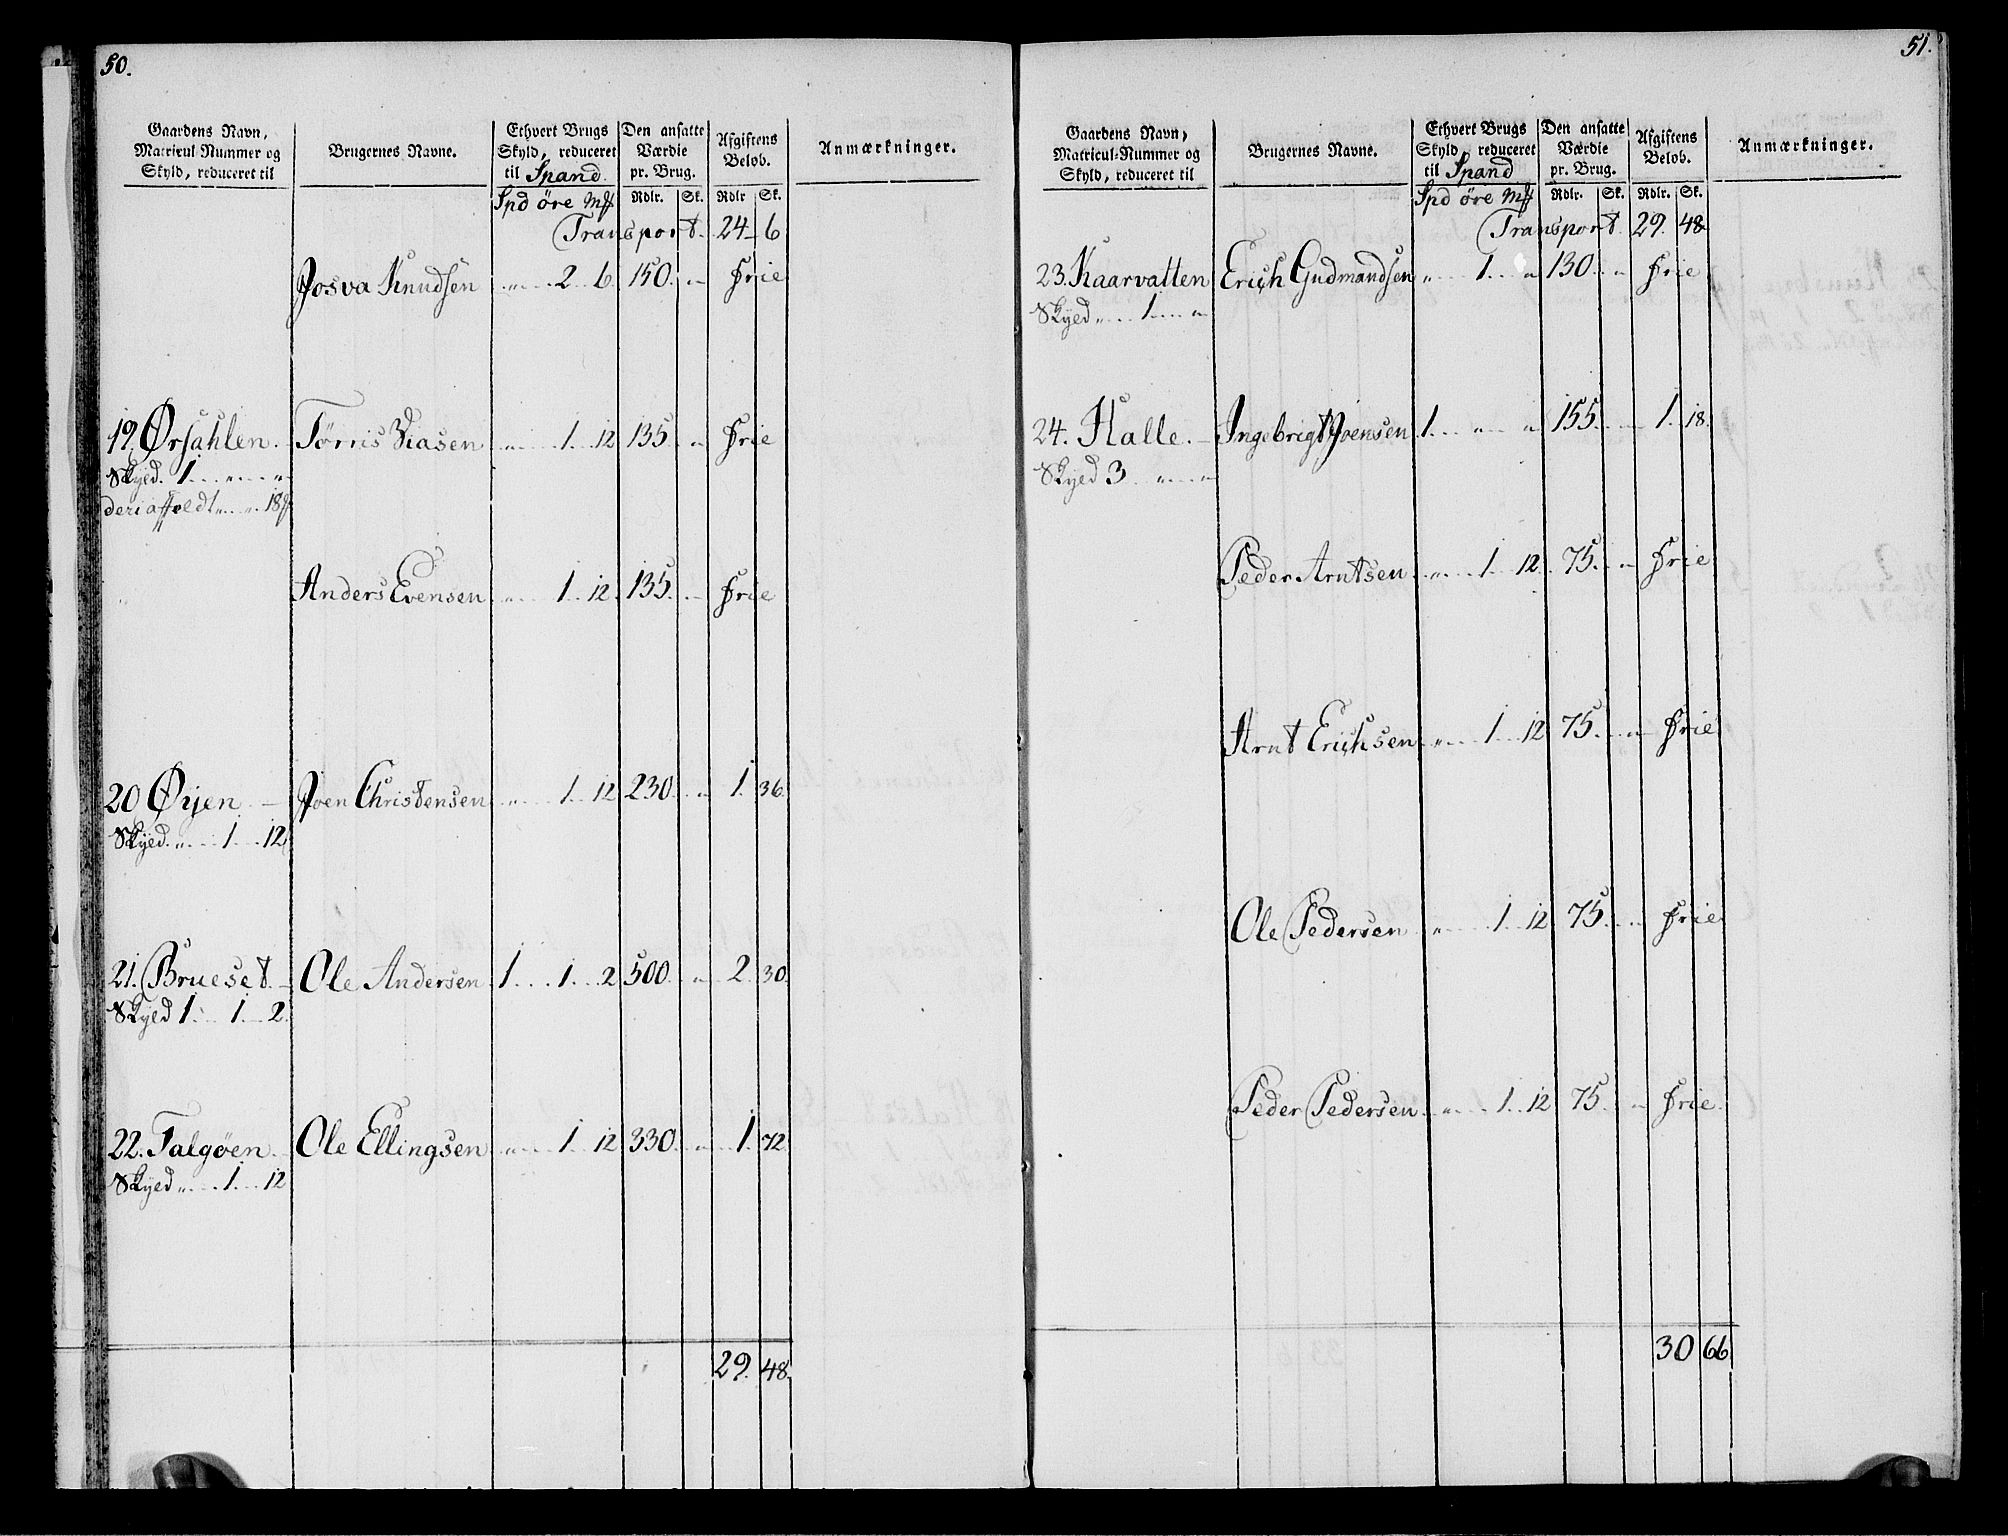 50.
Gaardens Navn, Matricul-Nummer og Skyld, reduceret til | Brugernes Navne. | Ethvert Brugs Skyld, reduceret til Spand. | Den ansatte Værdie pr. Brug. | Afgiftens Beløb. | Anmærkninger.
Spd øre Mk | Rdlr. | Sk. | Rdlr | Sk.
Transport. 24 6
Josva Knudsen „ 2 6. 150. „ Frie
19. Ørsahlen. Tørris Siasen „ 1 12 135 „ Frie
Skyed. 1 „ „
deri affeldt „ „ 18
Anders Evensen „ 1 12. 135. „ Frie
20 Øyen Joen Christensen „ 1 12 230 „ 1. 36.
Skyed. „ 1 12
21. Brueset Ole Andersen 1 1 2 500 „ 2. 30.
Skyed 1 1 2.
22. Talgøen Ole Ellingsen „ 1 12 330. „ 1. 72.
Skyed „ 1 12
29. 48.
51.
Gaardens Navn, Matricul-Nummer og Skyld, reduceret til | Brugernes Navne. | Ethvert Brugs Skyld, reduceret til Spand | Den ansatte Værdie pr. Brug. | Afgiftens Beløb. | Anmærkninger.
Spd øre Mk | Rdlr. | Sk. | Rdlr. | Sk.
Transport. 29. 48
23. Kaarvatten Erich Gudmandsen „ 1 „ 130 „ Frie
Skyed „ 1 „
24. Halle. Ingebrigt Joensen 1 „ „ 155 1. 18.
Skyed 3 „ „
Peder Arntsen „ 1 12. 75. „ Frie
Arnt Erichsen „ 1 12 75. „ Frie
Ole Pedersen „ 1 12 75. „ Frie
Peder Pedersen „ 1 12 75. „ Frie.
30 66